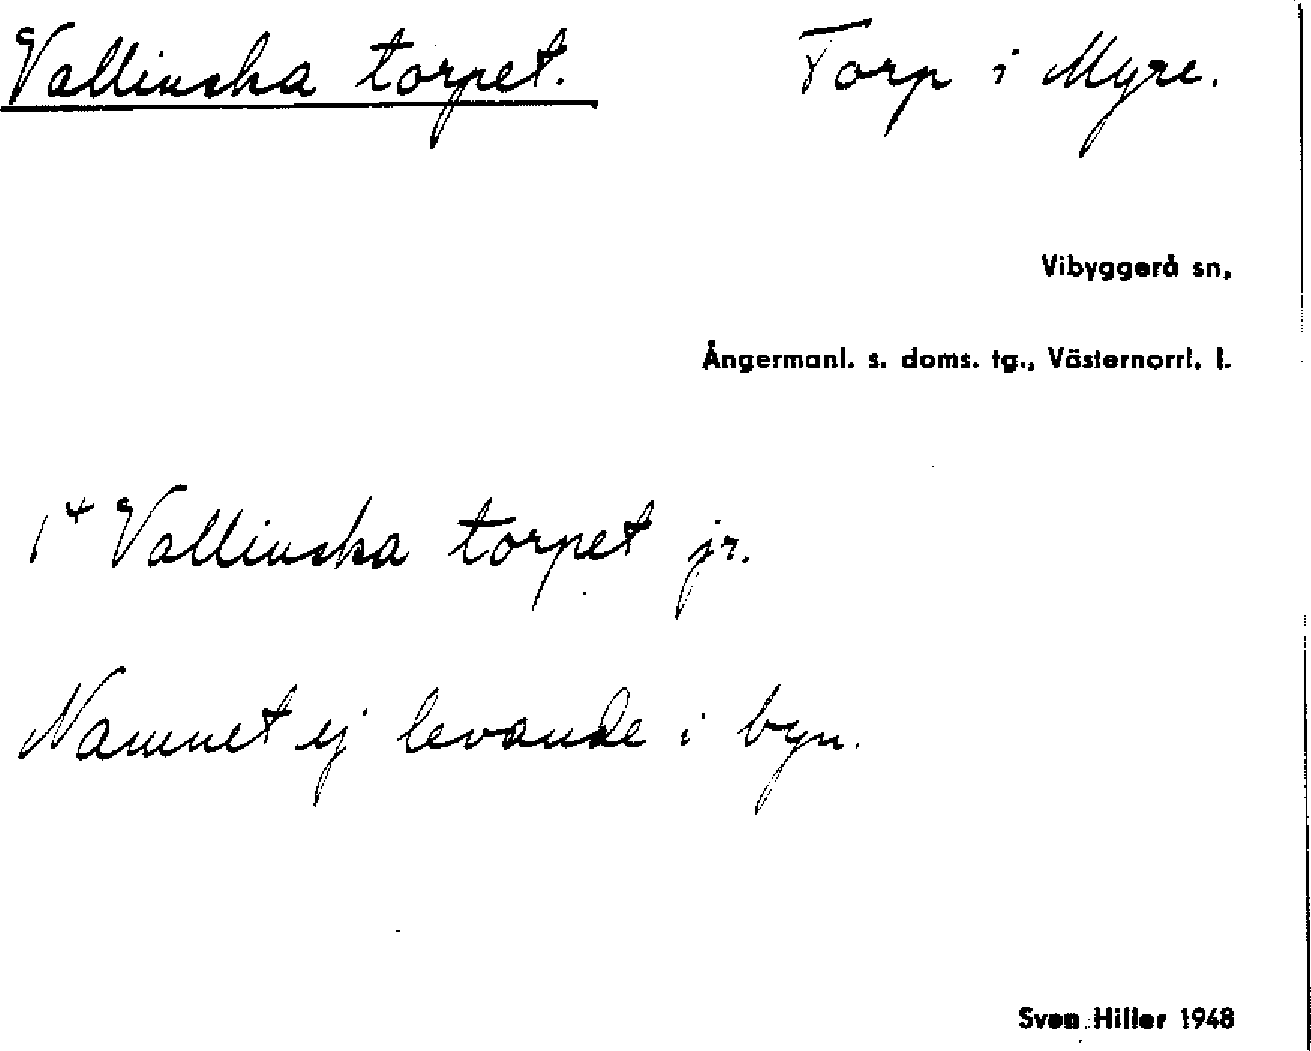 Vallinska torpet. Torp i Myre.
Vibyggerå sn,
Ångermanl. s. doms. tg., Västernorrl. l.
1⁴ Vallinska torpet jr.
Namnet ej levande i byn.
Sven Hiller 1948